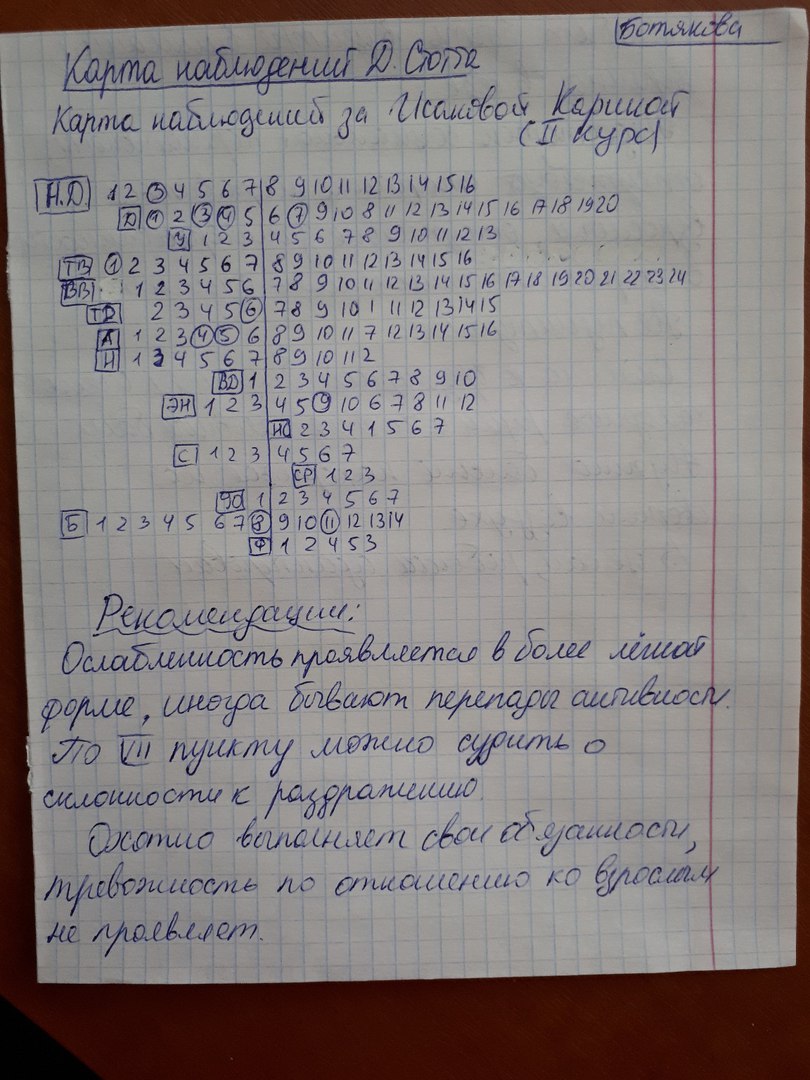 Ботякова
Карта наблюдений Д. Стотта
Карта наблюдений за Исаковой Кариной
(II курс)
Н.Д. 1 2 3 4 5 6 7 8 9 10 11 12 13 14 15 16
Д 1 2 3 4 5 6 7 9 10 8 11 12 13 14 15 16 17 18 19 20
У 1 2 3 4 5 6 7 8 9 10 11 12 13
ТВ 1 2 3 4 5 6 7 8 9 10 11 12 13 14 15 16
ВВ 1 2 3 4 5 6 7 8 9 10 11 12 13 14 15 16 17 18 19 20 21 22 23 24
ТД 2 3 4 5 6 7 8 9 10 1 11 12 13 14 15
А 1 2 3 4 5 6 8 9 10 11 7 12 13 14 15 16
Н 1 2 3 4 5 6 7 8 9 10 11 2
ВД 1 2 3 4 5 6 7 8 9 10
ЭН 1 2 3 4 5 9 10 6 7 8 11 12
НС 2 3 4 1 5 6 7
С 1 2 3 4 5 6 7
СР 1 2 3
УО 1 2 3 4 5 6 7
Б 1 2 3 4 5 6 7 8 9 10 11 12 13 14
Ф 1 2 4 5 3
Рекомендации:
Ослабленность проявляется в более лёгкой
форме, иногда бывают перепады активности.
По VII пункту можно судить о
склонности к раздражению.
Охотно выполняет свои обязанности,
тревожность по отношению ко взрослым
не проявляет.